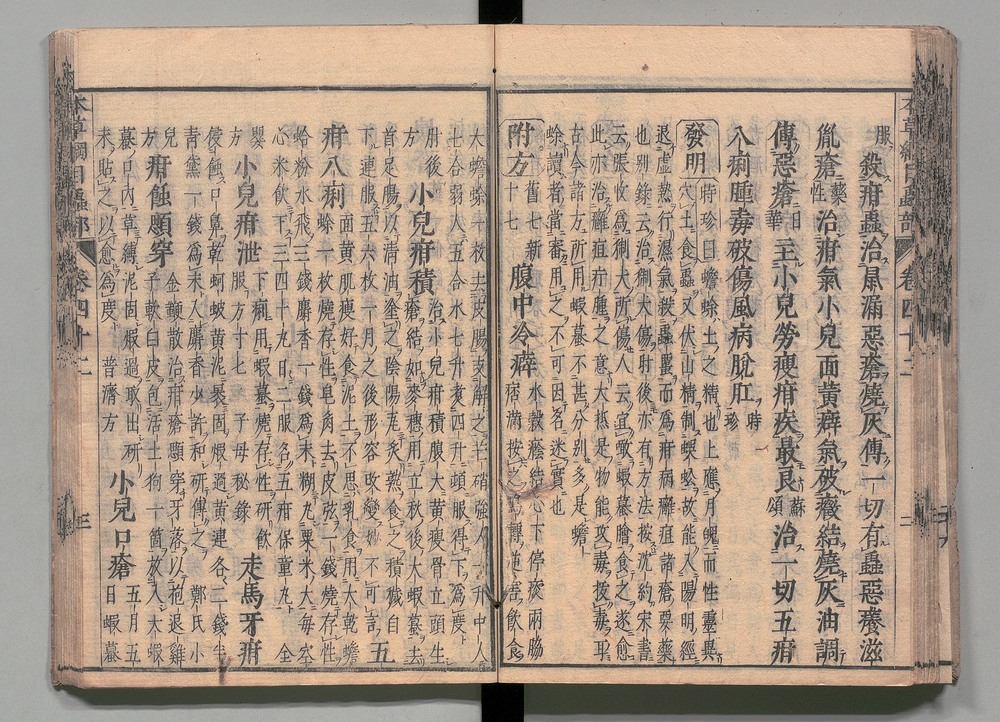 服
殺疳蟲治鼠漏惡瘡燒灰傅一切有蟲惡痒滋
胤瘡 藥性 治疳氣小兒面黃癖氣破癥結燒灰油調
傅惡瘡 日華 主小兒勞瘦疳疾最良 蘇頌 治一切五疳
八痢腫毒破傷風病脫肛 時珍
發明 時珍曰蟾蜍土之精也上應月魄而性靈異
穴土食蟲又伏山精制蜈蚣故能入陽明經
退虛熱行濕氣殺蟲䘌而為疳病癰疽諸瘡要藥
也別錄云治猘犬傷肘後亦有方法按沈約宋書
云張收為猘犬所傷人云宜噉蝦蟇膾食之遂愈
此亦治癰疽疔腫之意大抵是物能攻毒拔毒耳
古今諸方所用蝦蟇不甚分別多是蟾
蜍讀者當審用之不可因名迷實也
附方 舊七新十七 腹中冷癖 水穀癊結心下停痰兩脇
痞滿按之 飲食
大蟾蜍一枚去皮腸支解之芒硝強人一升中人
七合弱人五合水七升煮四升頓服得下為度
肘後方 小兒疳積 治小兒疳積腹大黃瘦骨立頭生
瘡結如麥穗用立秋後大蝦蟇去
首足腸以清油塗之陰陽瓦炙熟食之積穢自
下連服五六枚一月之後形容改變妙不可言 五
疳八痢 面黃肌瘦好食泥土不思乳食用大乾蟾
蜍一枚燒存性皂角去皮弦一錢燒存性
蛤粉水飛三錢麝香一錢為末糊丸粟米大每空
心米飲下三四十九日二服名五疳保童丸 全
嬰方 小兒疳泄 下痢用蝦蟇燒存性研飲
服方寸七 子母秘錄 走馬牙疳
侵蝕口鼻乾蚵蚾黃泥裹固煅過黃連各二錢半
青黛一錢為末入麝香少許和研傅之 鄭氏小
兒方 疳蝕䫡穿 金鞭散治疳瘡䫡穿牙落以抱退雞
子軟白皮包活土狗一箇放入大蝦
蟇口內草縛泥固煅過取出研
末貼之以愈為度 普濟方 小兒口瘡 五月五
日蝦蟇
本草綱目蟲部 卷四十二